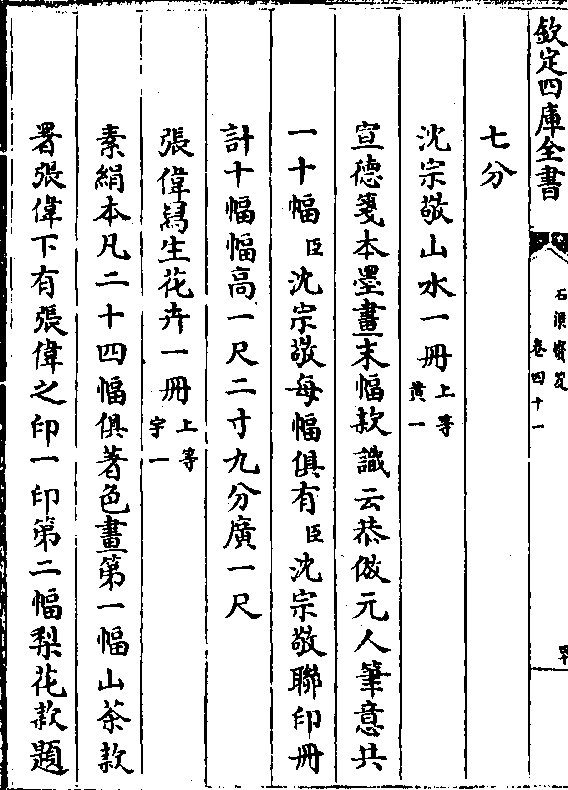 欽定四庫全書
石渠寶笈
卷四十一
七分
沈宗敬山水一冊上等黄一
宣德箋本墨畫末幅款識云恭倣元人筆意共
一十幅臣沈宗敬每幅俱有臣沈宗敬聯印冊
計十幅幅高一尺二寸九分廣一尺
張偉寫生花卉一冊上等宇一
素絹本凡二十四幅俱著色畫第一幅山茶款
署張偉下有張偉之印一印第二幅梨花款題